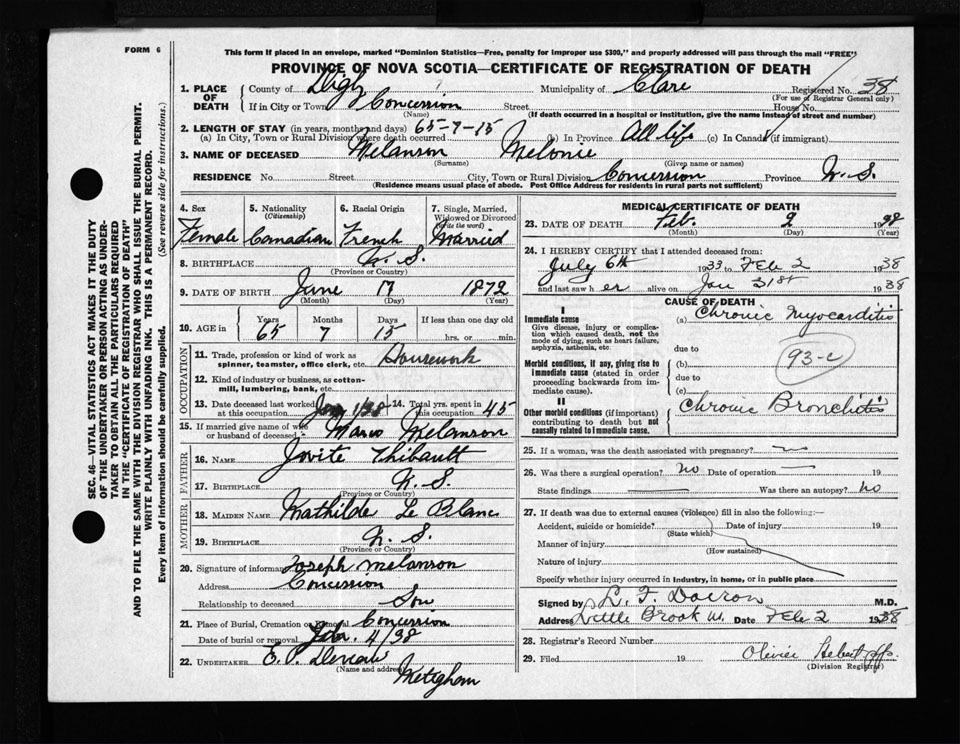 FORM 6
This form if placed in an envelope, marked "Dominion Statistics—Free, penalty for improper use $300," and properly addressed will pass through the mail "FREE"
PROVINCE OF NOVA SCOTIA—CERTIFICATE OF REGISTRATION OF DEATH
1. PLACE OF DEATH County of Digby Municipality of Clare Registered No. 38
(For use of Registrar General only)
If in City or Town Concession Street House No.
(Name) (If death occurred in a hospital or institution, give the name instead of street and number)
2. LENGTH OF STAY (in years, months and days) 65-7-15
(a) In City, Town or Rural Division where death occurred (b) In Province All life (c) In Canada (if immigrant)
3. NAME OF DECEASED Melanson Melonie
(Surname) (Given name or names)
RESIDENCE No. Street City, Town or Rural Division Concession Province N. S.
(Residence means usual place of abode. Post Office Address for residents in rural parts not sufficient)
4. Sex Female
5. Nationality (Citizenship) Canadian
6. Racial Origin French
7. Single, Married, Widowed or Divorced (write the word) Married
8. BIRTHPLACE N. S.
(Province or Country)
9. DATE OF BIRTH June 17 1872
(Month) (Day) (Year)
10. AGE in Years 65 Months 7 Days 15 If less than one day old hrs. or min.
OCCUPATION
11. Trade, profession or kind of work as spinner, teamster, office clerk, etc. Housework
12. Kind of industry or business, as cotton-mill, lumbering, bank, etc.
13. Date deceased last worked at this occupation Jan 1/38 14. Total yrs. spent in this occupation 45
15. If married give name of wife or husband of deceased Melanson
FATHER
16. NAME Jovite Thibault
17. BIRTHPLACE N. S.
(Province or Country)
MOTHER
18. MAIDEN NAME Mathilde Le Blanc
19. BIRTHPLACE N. S.
(Province or Country)
20. Signature of informant Joseph Melanson
Address Concession
Relationship to deceased Son
21. Place of Burial, Cremation or Removal Concession
Date of burial or removal Feb. 4/38
22. UNDERTAKER E. P. Deveau
(Name and address) Meteghan
MEDICAL CERTIFICATE OF DEATH
23. DATE OF DEATH Feb. 2 1938
(Month) (Day) (Year)
24. I HEREBY CERTIFY that I attended deceased from:
July 6th 1933 to Feb 2 1938
and last saw her alive on Jan 31st 1938
CAUSE OF DEATH
I
Immediate cause
Give disease, injury or complication which caused death, not the mode of dying, such as heart failure, asphyxia, asthenia, etc.
(a) Chronic Myocarditis
due to
Morbid conditions, if any, giving rise to immediate cause (stated in order proceeding backwards from immediate cause).
(b) 93-c
due to
(c)
II
Other morbid conditions (if important) contributing to death but not causally related to immediate cause.
Chronic Bronchitis
25. If a woman, was the death associated with pregnancy?
26. Was there a surgical operation? no Date of operation — 19
State findings Was there an autopsy? no
27. If death was due to external causes (violence) fill in also the following:—
Accident, suicide or homicide? Date of injury 19
(State which)
Manner of injury
(How sustained)
Nature of injury
Specify whether injury occurred in industry, in home, or in public place
Signed by L. F. Doiron M.D.
Address Little Brook Date Feb 2 1938
28. Registrar's Record Number
29. Filed 19 Olivier
(Division Registrar)
SEC. 46—VITAL STATISTICS ACT MAKES IT THE DUTY
OF THE UNDERTAKER OR PERSON ACTING AS UNDER-
TAKER TO OBTAIN ALL THE PARTICULARS REQUIRED
IN THE "CERTIFICATE OF REGISTRATION OF DEATH"
AND TO FILE THE SAME WITH THE DIVISION REGISTRAR WHO SHALL ISSUE THE BURIAL PERMIT.
WRITE PLAINLY WITH UNFADING INK. THIS IS A PERMANENT RECORD.
Every item of information should be carefully supplied. (See reverse side for instructions.)